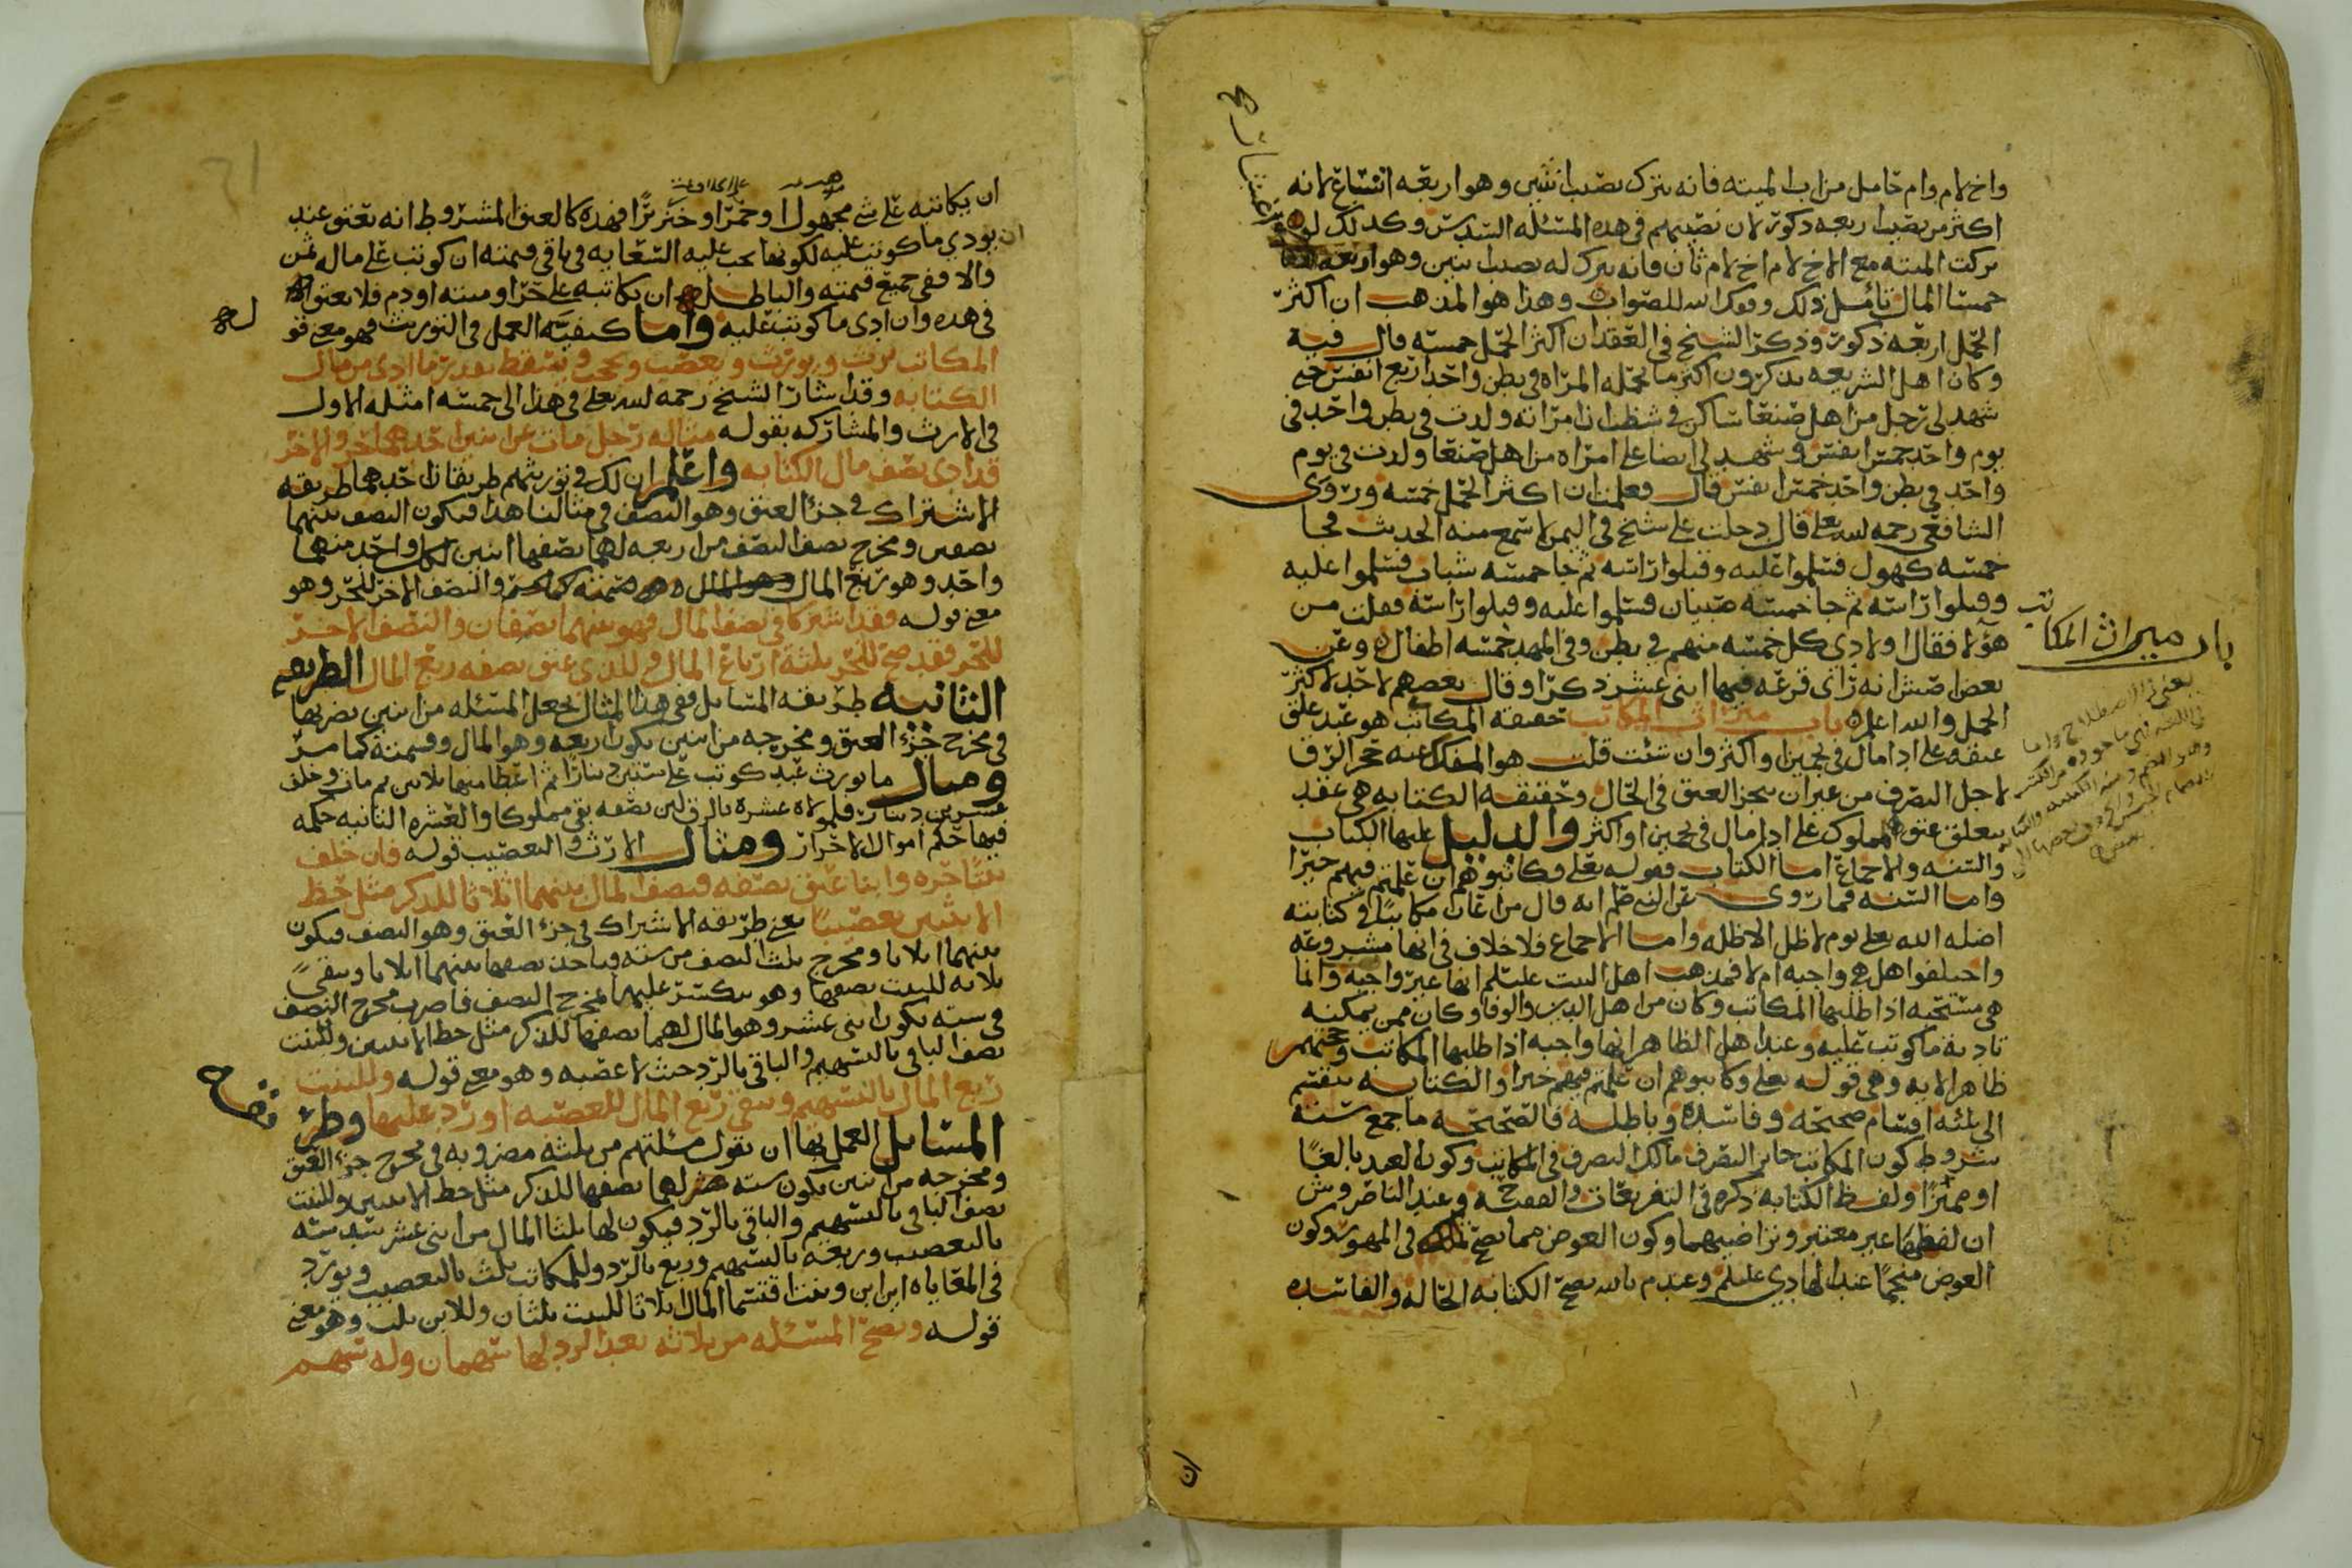 واخ لام وام حامل من اب الميته فانه يترك نصيب انثيين وهو اربعه اتساع لانه
اكثر من نصيب اربعه ذكور لان نصيبهم في هذه المسئله السدس وكذلك لو
تركت الميته مع الاخ لام اخ لام ثان فانه يترك له نصيب اثنين وهو اربعه
خمسا المال تامل ذلك وفقك الله للصواب وهذا هو المذهب ان اكثر
الحمل اربعه ذكور وذكر الشيخ في العقد ان اكثر الحمل خمسه قال فيه
وكان اهل الشريعه يذكرون اكثر ما تحمله المراه في بطن واحد اربع انفس حتى
شهد لي رجل من اهل صنعا ساكن في شظب ان امراته ولدت في بطن واحد في
يوم واحد خمس انفس وشهد لي ايضا على امراه من اهل صنعا ولدت في يوم
واحد في بطن واحد خمس انفس قال فعلمنا ان اكثر الحمل خمسه وروى
الشافعي رحمه الله تعلى قال دخلت على شيخ في اليمن لاسمع منه الحديث فجا
خمسه كهول فسلموا عليه وقبلوا راسه ثم جا خمسه شباب فسلموا عليه
وقبلوا راسه ثم جا خمسه صبيان فسلموا عليه وقبلوا راسه فقلت من
هؤلا فقال اولادي كل خمسه منهم في بطن وفي المهد خمسه اطفال وعن
بعض انه راى قرعه فيها اثنى عشر ذكرا وقال بعضهم لا حد لاكثر
الحمل والله اعلم باب ميراث المكاتب حقيقه المكاتب هو عبد علق
عتقه على ادا مال في نجمين او اكثر وان شئت قلت هو المفكك عنه حجر الرق
لاجل التصرف من غير ان ينجز العتق في الحال وحقيقه الكتابه هي عقد
يتعلق عتق المملوك على ادا مال في نجمين او اكثر والدليل عليها الكتاب
والسنه والاجماع اما الكتاب فقوله تعلى فكاتبوهم ان علمتم فيهم خيرا
واما السنه فما روي عن النبي صلم انه قال من اعان مكاتبا في كتابته
اضله الله تعلى يوم لا ظل الا ظله واما الاجماع فلا خلاف في انها مشروعه
واختلفوا هل هي واجبه ام لا فمذهب اهل البيت عليسلم انها غير واجبه وانما
هي مستحبه اذا طلبها المكاتب وكان من اهل الدين والوفا وكان ممن يمكنه
تاديه ما كوتب عليه وعند اهل الظاهر انها واجبه اذا طلبها المكاتب وحجتهم
ظاهر الايه وهي قوله تعلى وكاتبوهم ان علمتم فيهم خيرا والكتابه تنقسم
الى ثلثه اقسام صحيحه وفاسده وباطله فالصحيحه ما جمع سته
شروط كون المكاتب جايز التصرف مالك التصرف في المكاتب وكون العبد بالغا
او مميزا ولفظ الكتابه ذكره في التفريعات وعند الناصر وش
ان لفظها غير معتبر وتراضيهما وكون العوض مما يصح تملكه في المهور وكون
العوض منجما عند الهادي عليلم وعند م بالله تصح الكتابه الحاله والفاسده
باب ميراث المكاتب
ان يكاتبه على شي مجهول او خمرا او خنزيرا فهذه كالعتق المشروط انه يعتق عند
ان يودي ما كوتب عليه لكونها يجب عليه السعايه في باقي قيمته ان كوتب على مال له ثمن
والا ففي جميع قيمته والباطله ان يكاتبه على حر او ميته او دم فلا يعتق
في هذه وان ادى ما كوتب عليه واما كيفيه العمل في التوريث فهو معنى قو
المكاتب يرث ويورث ويعصب ويحجب ويسقط بقدر ما ادى من مال
الكتابه وقد اشار الشيخ رحمه الله تعلى في هذا الى خمسه امثله الاول
في الارث والمشاركه بقوله مثاله رجل مات عن ابنين احدهما حر والاخر
قد ادى نصف مال الكتابه واعلم ان لك في توريثهم طريقان احدهما طريقه
الاشتراك في جزء العتق وهو النصف في مثالنا هذا فيكون النصف بينهما
نصفين ومخرج نصف النصف من اربعه لهما نصفها اثنين لكل واحد منهما
واحد وهو ربع المال والنصف الاخر للحر وهو
معنى قوله فقد اشتركا في نصف المال فهو بينهما نصفان والنصف الاخر
للحر فقد صح للحر ثلثه ارباع المال وللذي عتق نصفه ربع المال الطريقه
الثانيه طريقه المسايل ففي هذا المثال نجعل المسئله من اثنين نضربها
في مخرج جزء العتق ومخرجه من اثنين يكون اربعه وهو المال وقسمته كما مر
ومثال ما يورث عبد كوتب على ستين دينارا ثم اعطا منها ثلاثين ثم مات وخلف
عشرين دينار فلمولاه عشره بالرق لان نصفه بقي مملوكا والعشره الثانيه حكمه
فيها حكم اموال الاحرار ومثال الارث والتعصيب قوله فان خلف
بنتا حره وابنا عتق نصفه فنصف المال بينهما اثلاثا للذكر مثل حظ
الانثيين تعصيبا يعني طريقه الاشتراك في جزء العتق وهو النصف فيكون
بينهما اثلاثا ومخرج ثلث النصف من سته وياخذ نصفها بينهما اثلاثا ويبقى
ثلاثه للبنت نصفها وهو ينكسر عليهما لمخرج النصف فاضرب مخرج النصف
في سته يكون اثنى عشر وهو المال لهما نصفها للذكر مثل حظ الانثيين وللبنت
نصف الباقي بالتسهيم والباقي بالرد حيث لا عصبه وهو معنى قوله وللبنت
ربع المال بالتسهيم وبقي ربع المال للعصبه او رد عليها وطر
المسايل العمل بها ان تقول مسئلتهم من ثلثه مضروبه في مخرج جزء العتق
ومخرجه من اثنين يكون سته لهما نصفها للذكر مثل حظ الانثيين وللبنت
نصف الباقي بالتسهيم والباقي بالرد فيكون لها ثلثا المال من اثنى عشر سدسه
بالتعصيب وربعه بالتسهيم وربع بالرد وللمكاتب ثلث بالتعصيب ويورد
في المعاياه اين ابن وبنت اقتسما المال اثلاثا للبنت ثلثان وللابن ثلث وهو معنى
قوله وتصح المسئله من ثلاثه بعد الرد لها سهمان وله سهم